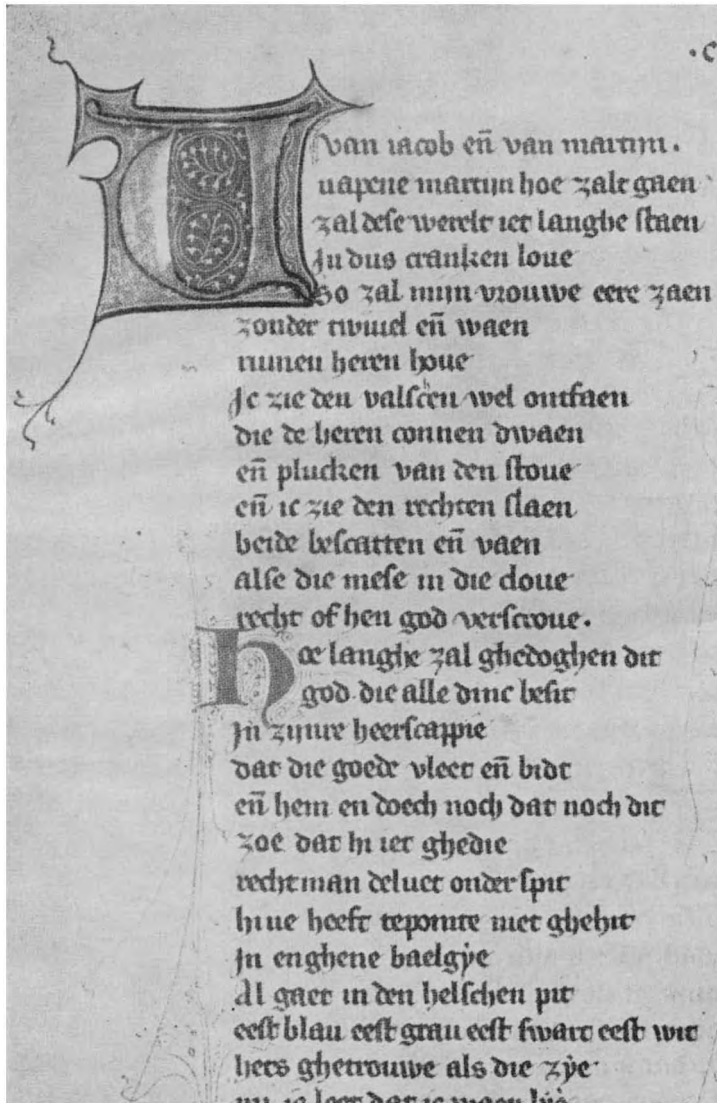 ·C
van iacob eñ van martin.
Wapene martijn hoe zalt gaen
zal dese werelt iet langhe staen
In dus cranken loue
So zal mijn vrouwe eere zaen
zonder twiuel eñ waen
rumen heren houe
Ic zie den valscen wel ontfaen
die de heren connen dwaen
eñ plucken van den stoue
eñ ic zie den rechten slaen
beide bescatten eñ vaen
alse die mese in die cloue
recht of hen god verscroue.
Hoe langhe zal ghedoghen dit
god die alle dinc besit
In zijnre heerscappie
dat die goede vleet eñ bidt
eñ hem en doech noch dat noch dit
zoe dat hi iet ghedie
recht man deluet onder spit
hi ne heeft te pointe niet ghehit
In enghene baelgye
Al gaet in den helschen pit
eest blau eest grau eest swart eest wit
hets ghetrouwe als die zye
nu ic leet dat ic waen lye